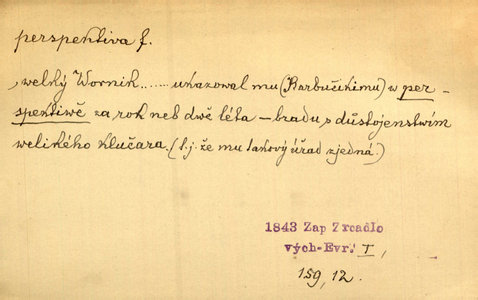 perspektiva f.
„welký Wornik......ukazoval mu (Barbučikimu) w per-
spektiwě za rok neb dwě léta – bradu s důstojenstwím
welikého klučara. (t.j. že mu takový úřad zjedná.)
1843 Zap Zrcadlo
vých-Evr. I,
159, 12.